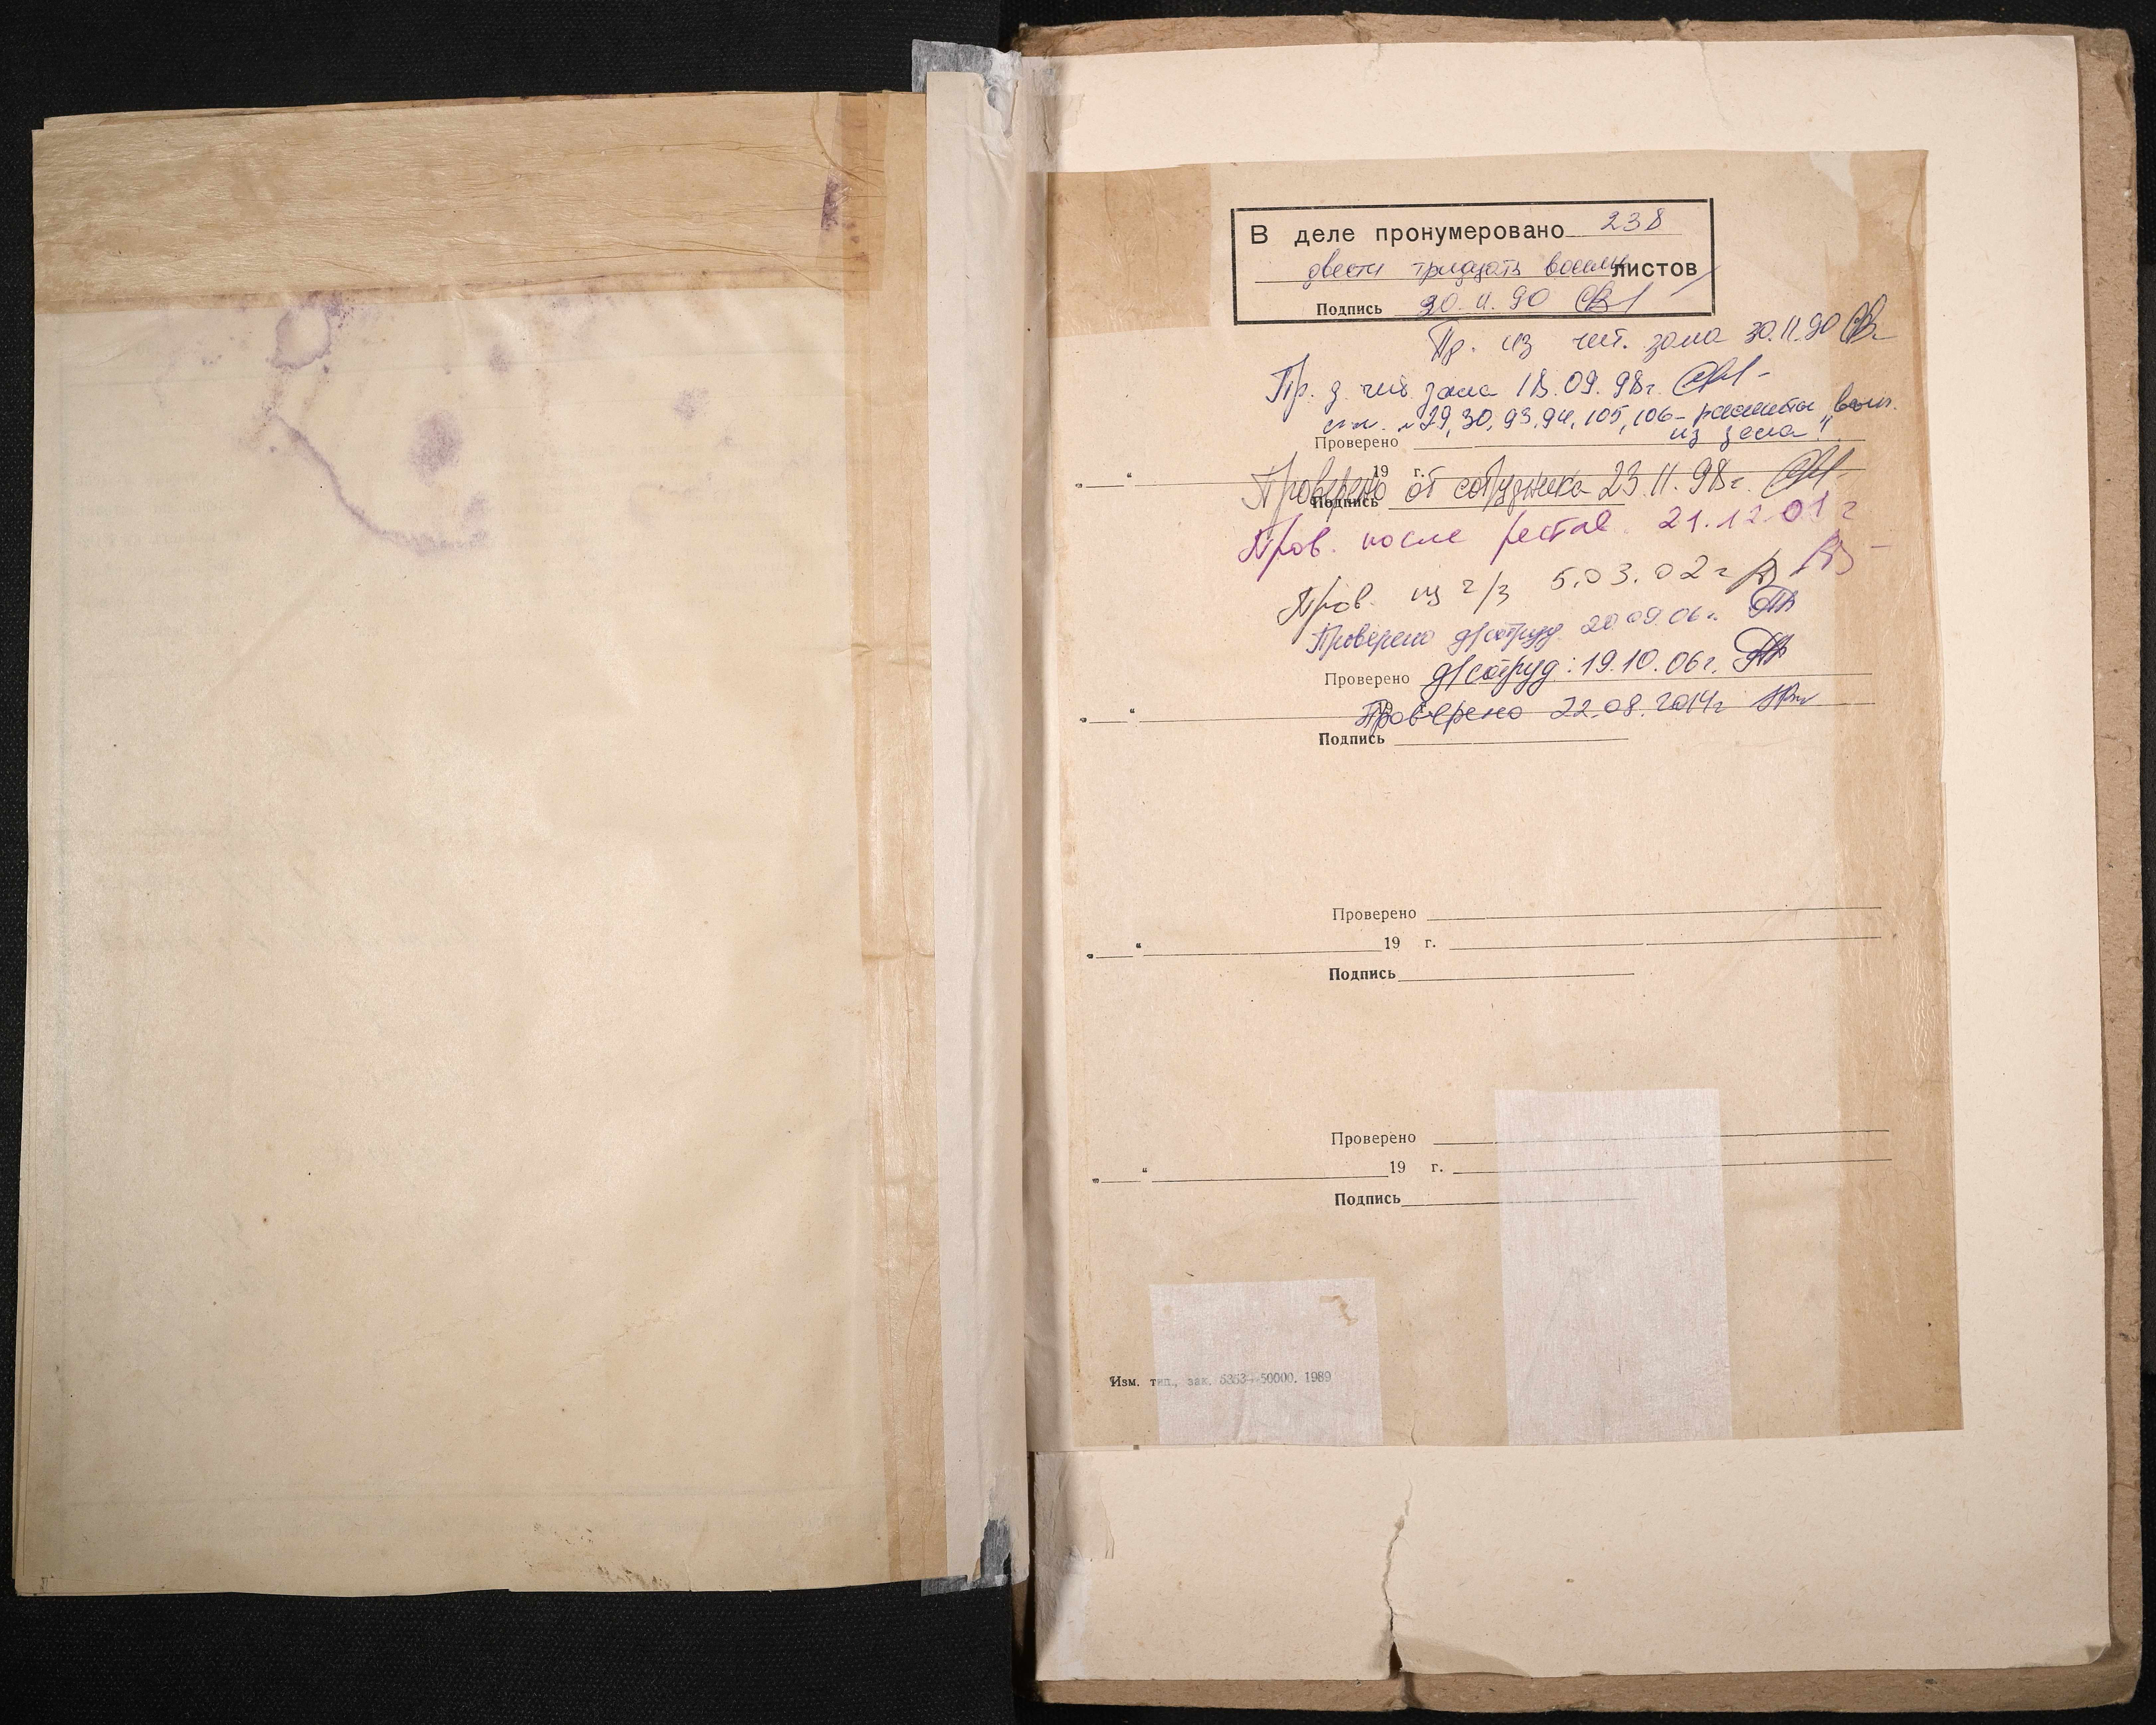 В деле пронумеровано 238
двести тридцать восемь листов
Подпись 30.11.90
Пр. из чит. зала 30.11.90
Пр. д. чит. зала 18.09.98г.
29, 30, 93, 94, 105, 106 -
из зала"
Проверено
„ “ 19 г.
Проверено от сотрудника 23.11.98г.
Подпись
Пров. после рестав. 21.12.01г
Пров. из ч/з 5.03.02г
Проверено д/сотруд. 20.09.06г.
Проверено д/сотруд: 19.10.06г.
„ “ 19
Проверено 22.08.2014г
Подпись
Проверено
„ “ 19 г.
Подпись
Проверено
„ “ 19 г.
Подпись
Изм. тип., зак. 6353—50000. 1989